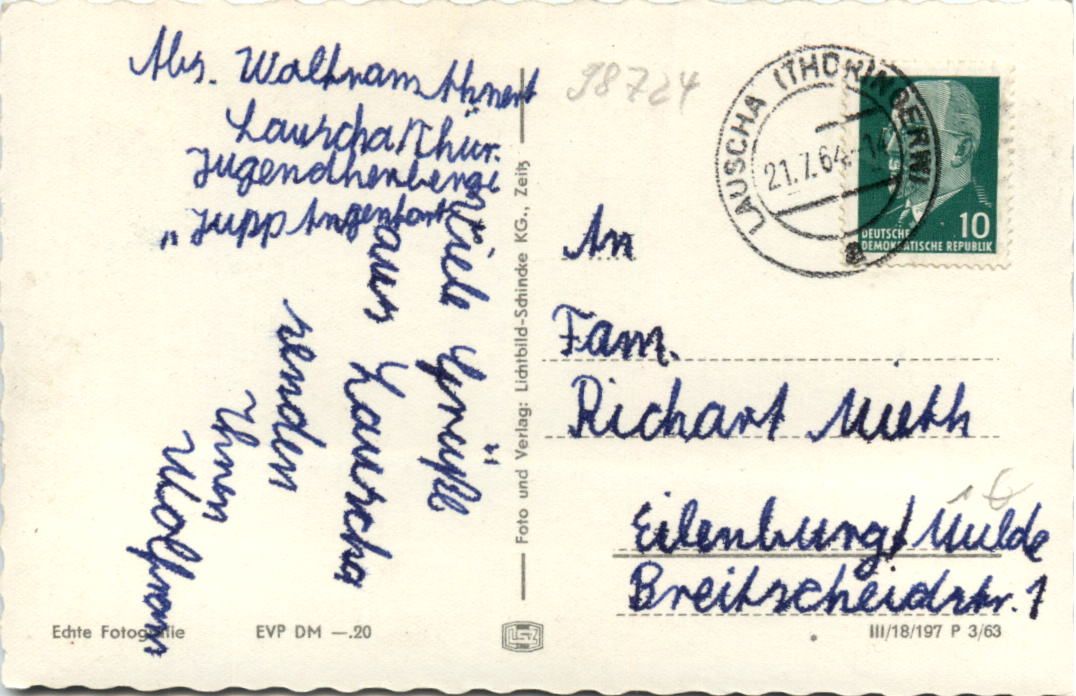 Abs. Waltram Ahnert
Lauscha/Thür.
Jugendherberge
"Jupp Angenfort"
Viele Grüße
aus Lauscha
senden
Ihnen
Wolfram
98724
LAUSCHA (THÜRINGERW)
21.7.64-14
a
DEUTSCHE
DEMOKRATISCHE REPUBLIK
10
An
Fam.
Richart Mieth
Eilenburg/Mulde
Breitscheidstr. 1
Foto und Verlag: Lichtbild-Schincke KG., Zeitz
Echte Fotografie
EVP DM —.20
III/18/197 P 3/63